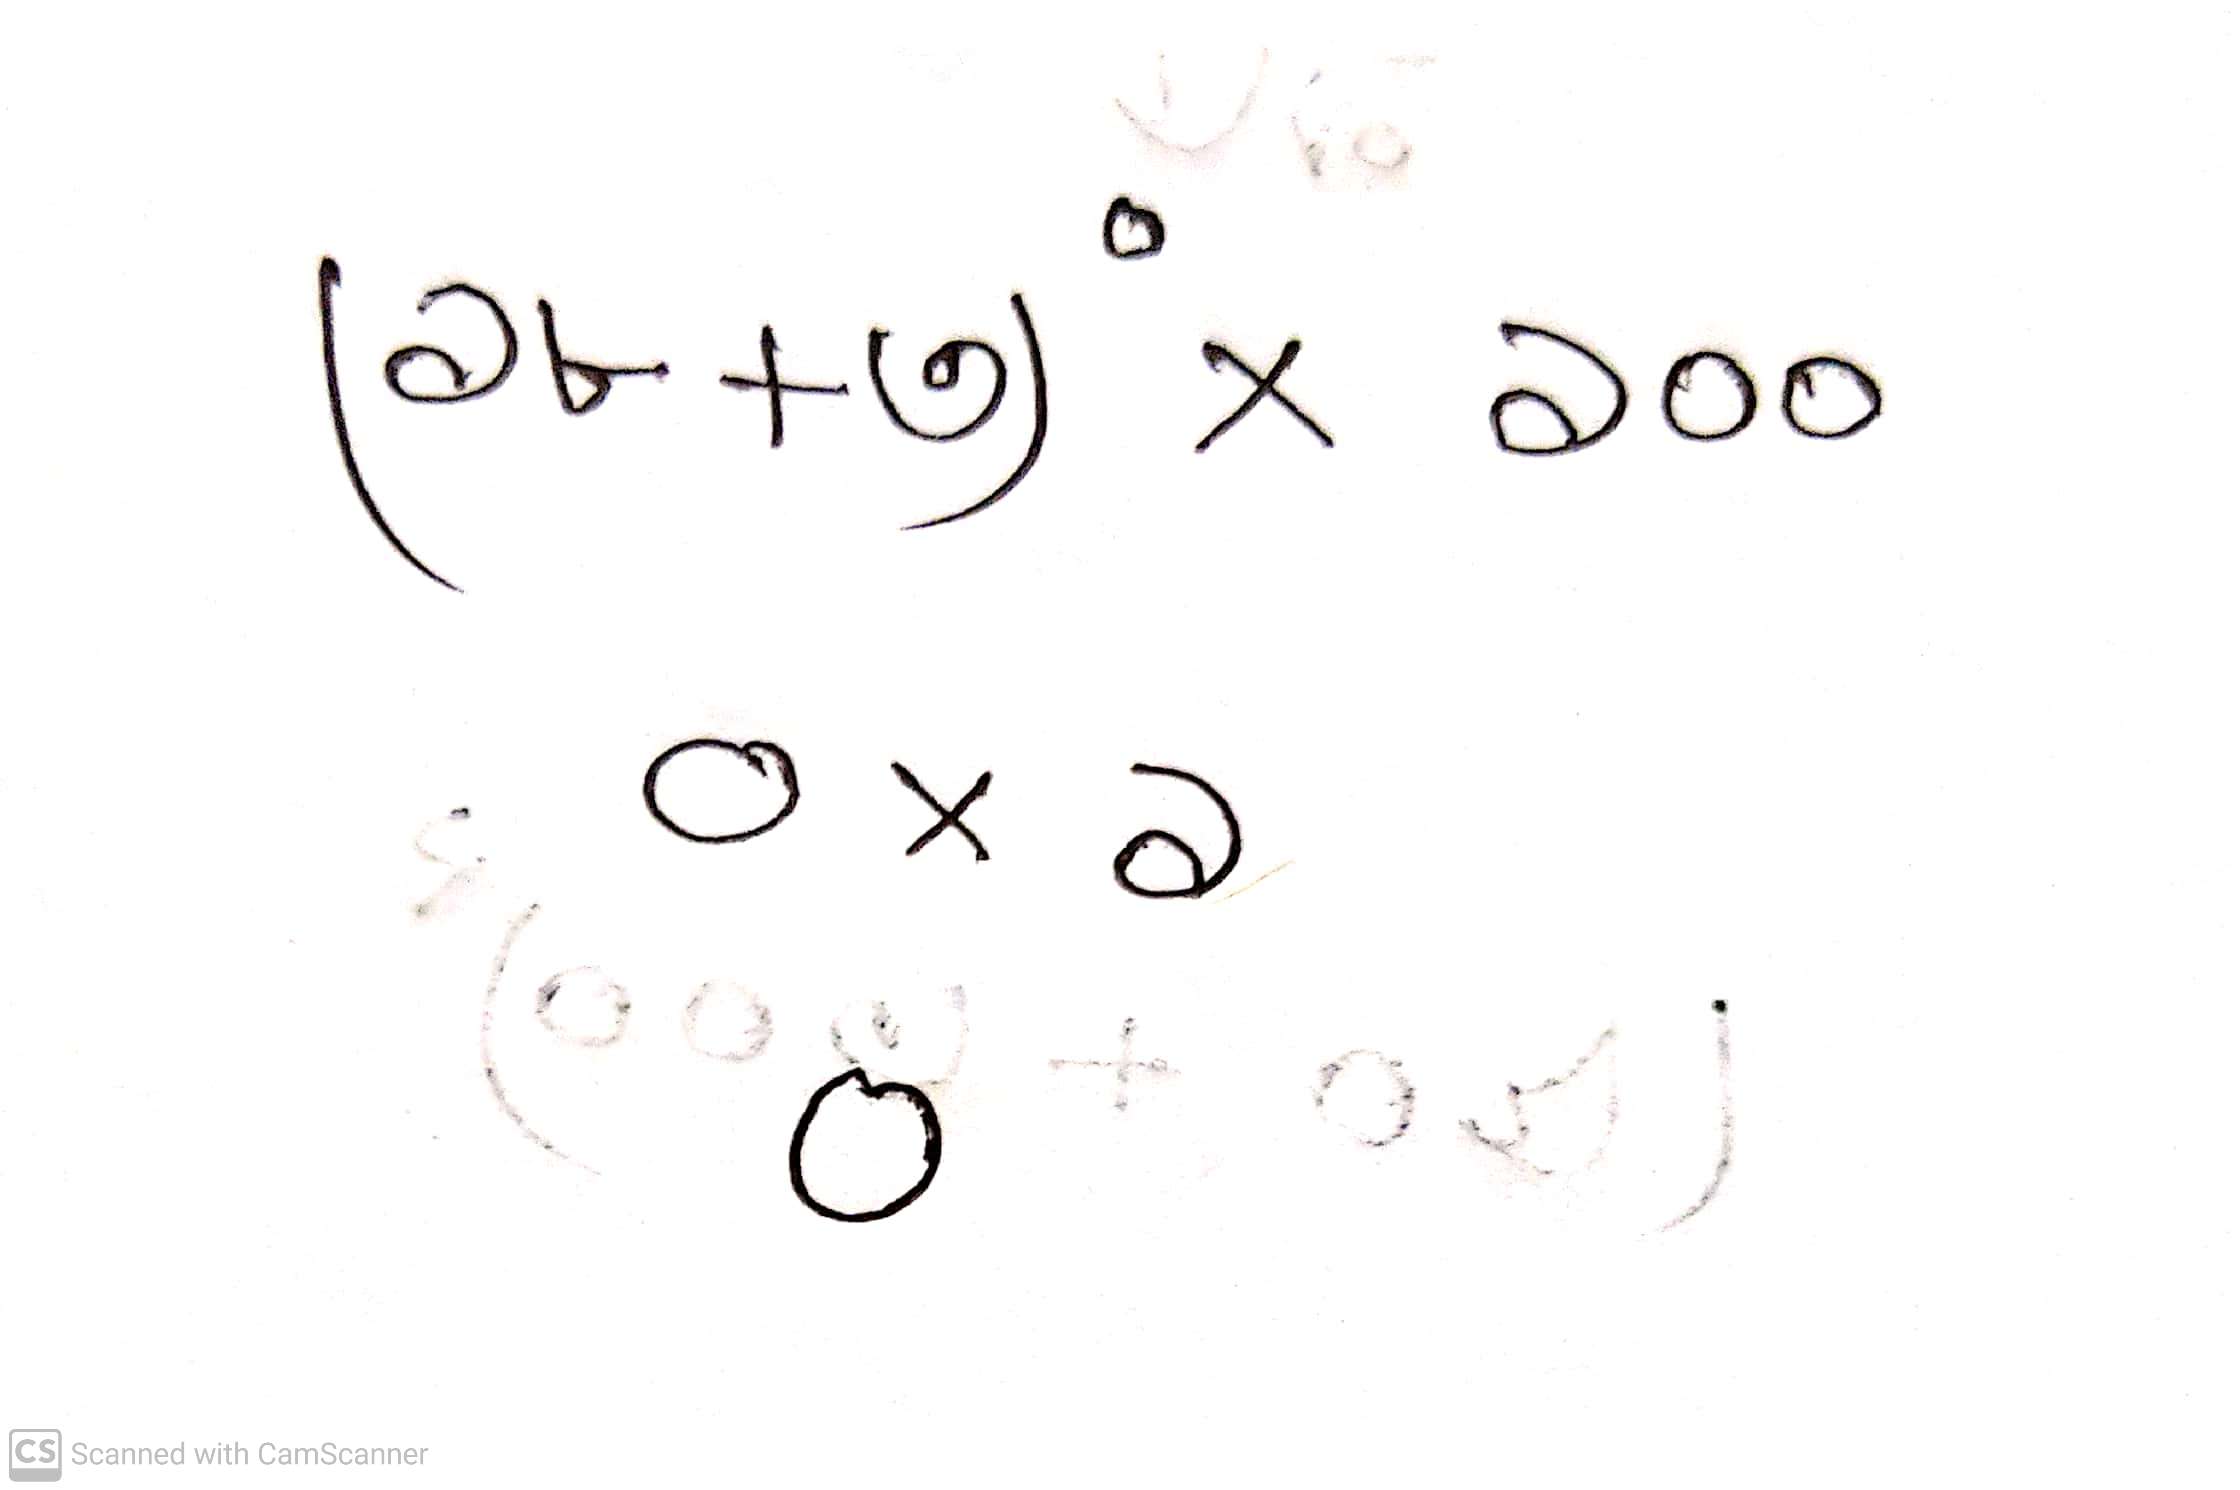 (১৮+৩)⁰ × ১০০
০ × ১
০
CS Scanned with CamScanner